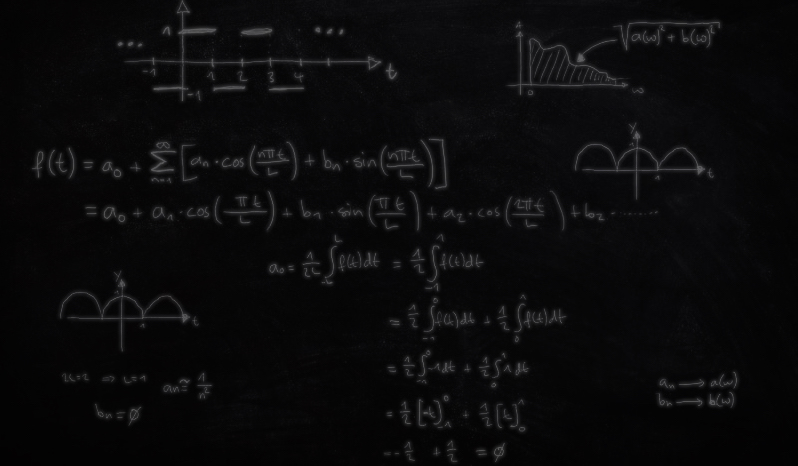 1
... ...
-1 1 2 3 4 t
-1
A
√(a(ω)² + b(ω)²)
0 ω
y
1 t
f(t) = a₀ + ∑ₙ₌₁^∞ [aₙ · cos(nπt/L) + bₙ · sin(nπt/L)]
= a₀ + a₁ · cos(πt/L) + b₁ · sin(πt/L) + a₂ · cos(2πt/L) + b₂ · ........
a₀ = 1/2L ∫₋L^L f(t)dt = 1/2 ∫₋₁^1 f(t)dt
y
1 t
= 1/2 ∫₋₁^0 f(t)dt + 1/2 ∫₀^1 f(t)dt
= 1/2 ∫₋₁^0 -1dt + 1/2 ∫₀^1 1dt
2L=2 ⇒ L=1 aₙ ≅ 1/n²
bₙ = ∅
aₙ → a(ω)
bₙ → b(ω)
= 1/2 [-t]₋₁^0 + 1/2 [t]₀^1
= -1/2 + 1/2 = ∅